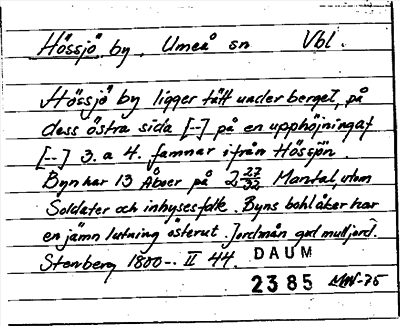 Hössjö by, Umeå sn Vbl.
Hössjö by ligger tätt under berget, på
dess östra sida [--] på en upphöjning af
[--] 3. a 4. famnar ifrån Hössjön.
Byn har 13 Åboer på 2 27/32 Mantal, utom
Soldater och inhysesfolk. Byns bohlåker har
en jämn lutning österut. Jordmån god mulljord.
Stenberg 1800-. II 44. DAUM
2385 MW-75